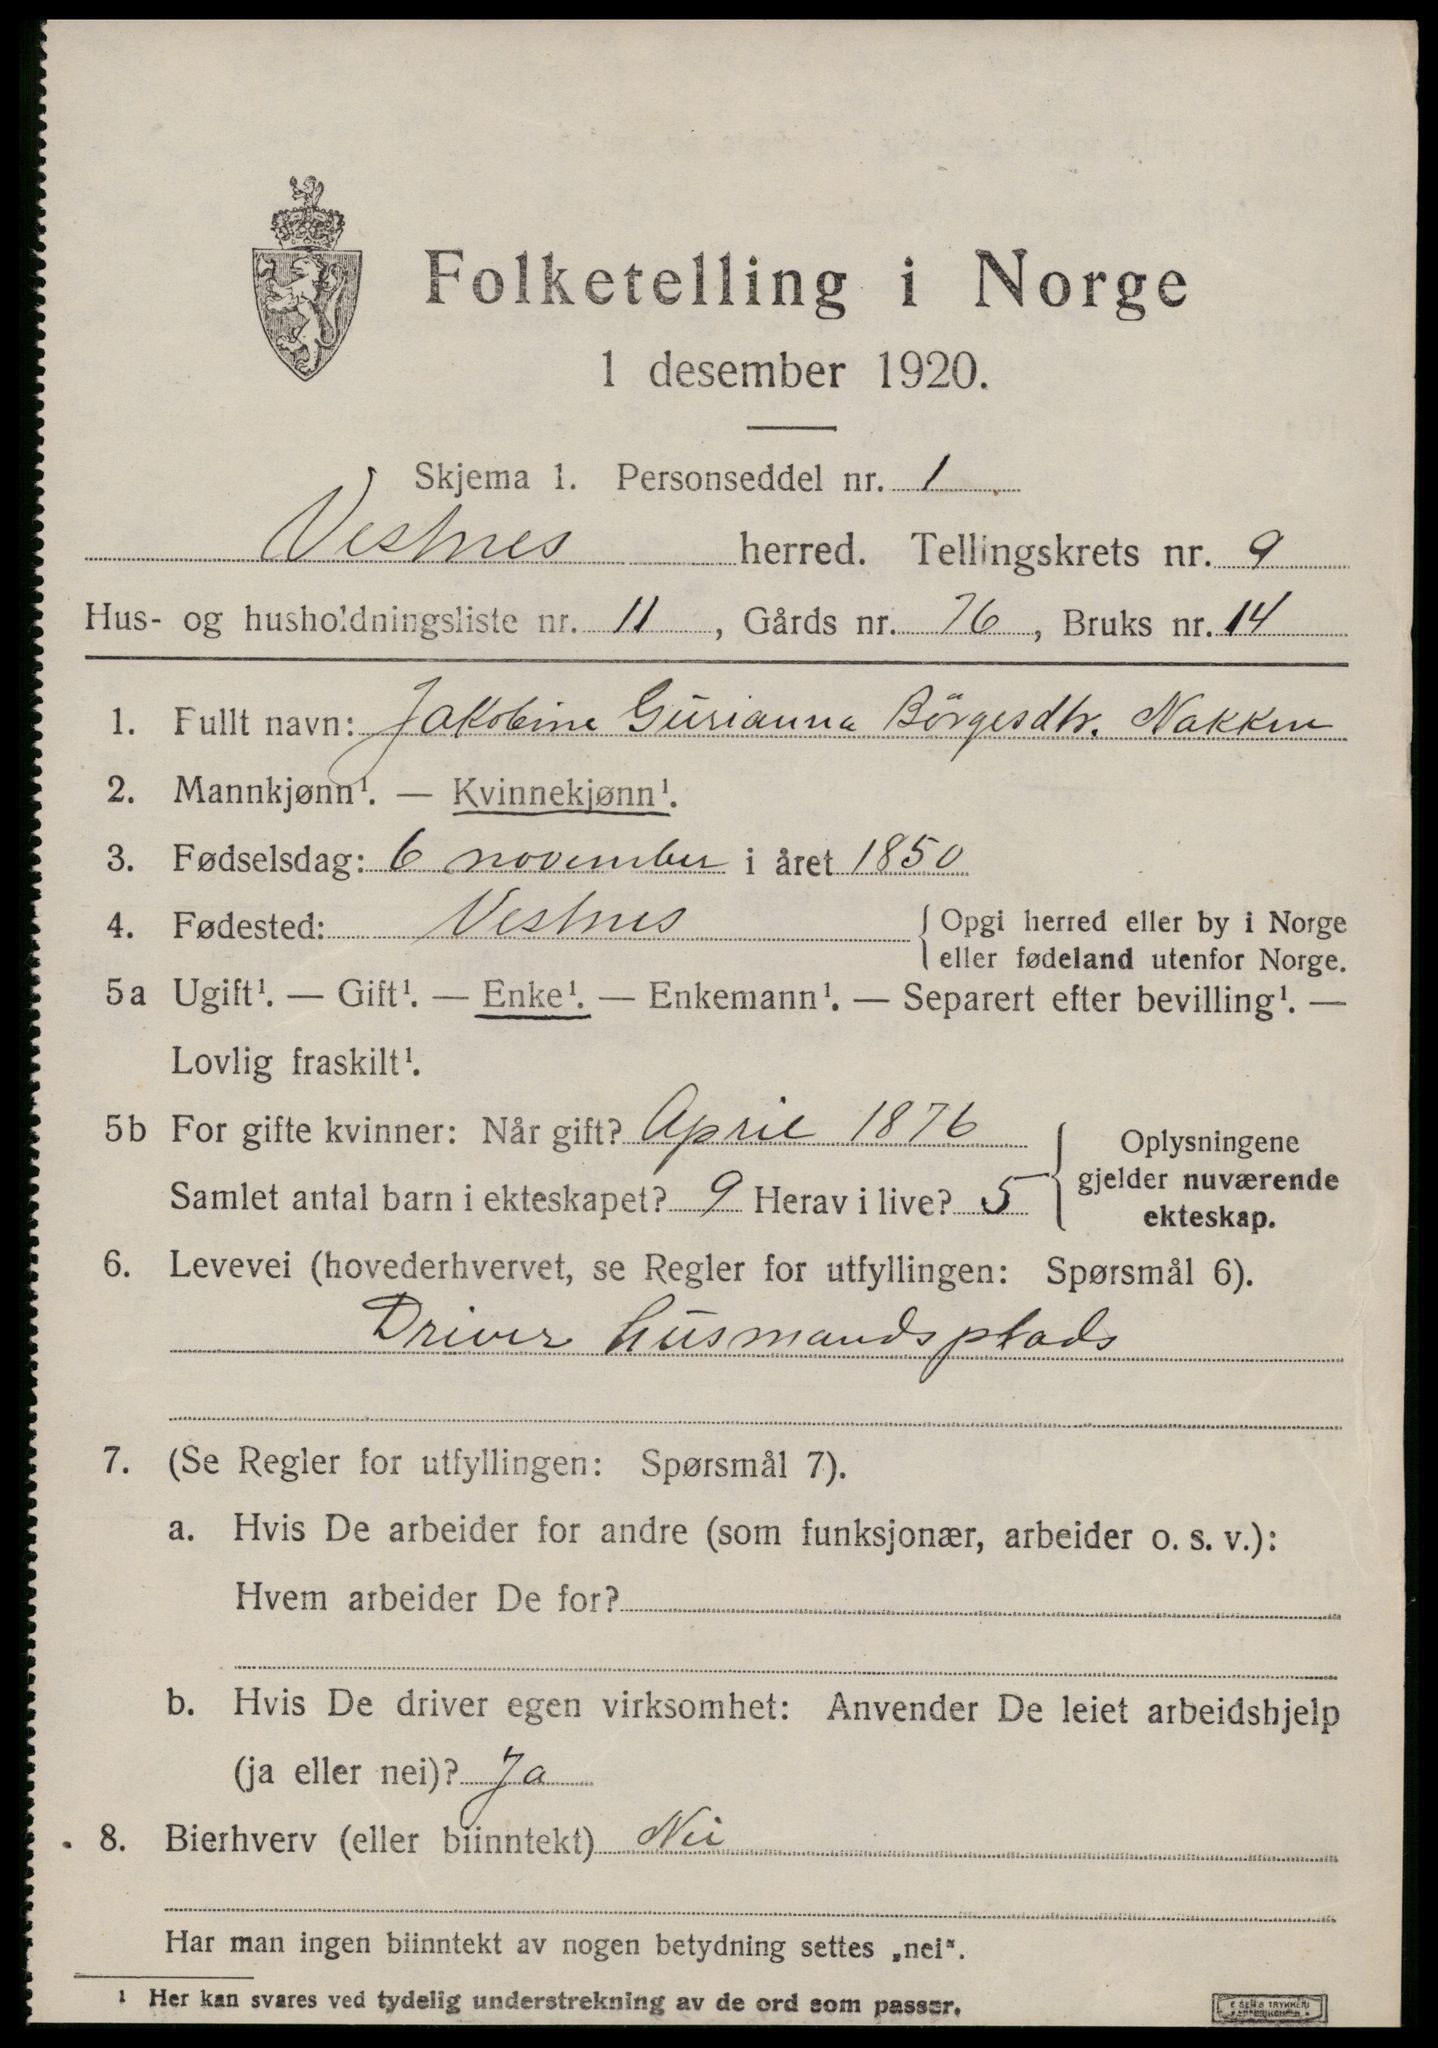 Folketelling i Norge
1 desember 1920.
Skjema 1. Personseddel nr. 1
Vestnes herred. Tellingskrets nr. 9
Hus- og husholdningsliste nr. 11, Gårds nr. 76, Bruks nr. 14
1. Fullt navn: Jakobine Gurianna Börgesdtr. Nakken
2. Mannkjønn¹. — Kvinnekjønn¹.
3. Fødselsdag: 6 november i året 1850
4. Fødested: Vestnes { Opgi herred eller by i Norge
eller fødeland utenfor Norge.
5a Ugift¹. — Gift¹. — Enke¹. — Enkemann¹. — Separert efter bevilling¹. —
Lovlig fraskilt¹.
5b For gifte kvinner: Når gift? April 1876
Samlet antal barn i ekteskapet? 9 Herav i live? 5
Oplysningene
gjelder nuværende
ekteskap.
6. Levevei (hovederhvervet, se Regler for utfyllingen: Spørsmål 6).
Driver husmandsplads
7. (Se Regler for utfyllingen: Spørsmål 7).
a. Hvis De arbeider for andre (som funksjonær, arbeider o. s. v.):
Hvem arbeider De for?
b. Hvis De driver egen virksomhet: Anvender De leiet arbeidshjelp
(ja eller nei)? Ja
8. Bierhverv (eller biinntekt) Nei
Har man ingen biinntekt av nogen betydning settes „nei“.
¹ Her kan svares ved tydelig understrekning av de ord som passer.